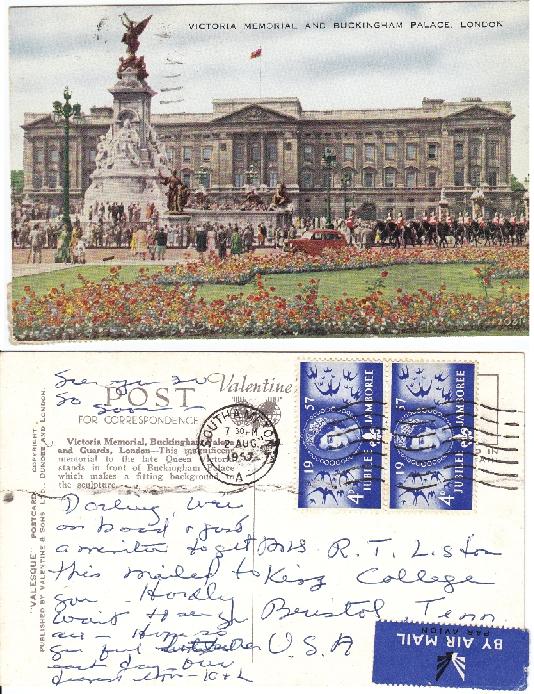 VICTORIA MEMORIAL AND BUCKINGHAM PALACE, LONDON
See you
so soon
POST
Valentine
FOR CORRESPONDENCE
Victoria Memorial, Buckingham Palace
and Guards, London—This magnificent
memorial to the late Queen Victoria
stands in front of Buckingham Palace
which makes a fitting background to
the sculpture.
"VALESQUE" POSTCARD COPYRIGHT
PUBLISHED BY VALENTINE & SONS LTD. DUNDEE AND LONDON.
SOUTHAMPTON
7 30 PM
2 AUG
1957
A
1957
JUBILEE JAMBOREE
4D
1957
JUBILEE JAMBOREE
4D
Darling, We
on board & just
a minute to get
this mailed to
you Hardly
wait
each day
Mrs R. T. Liston
King College
Bristol, Tenn
U.S.A
BY AIR MAIL
PAR AVION